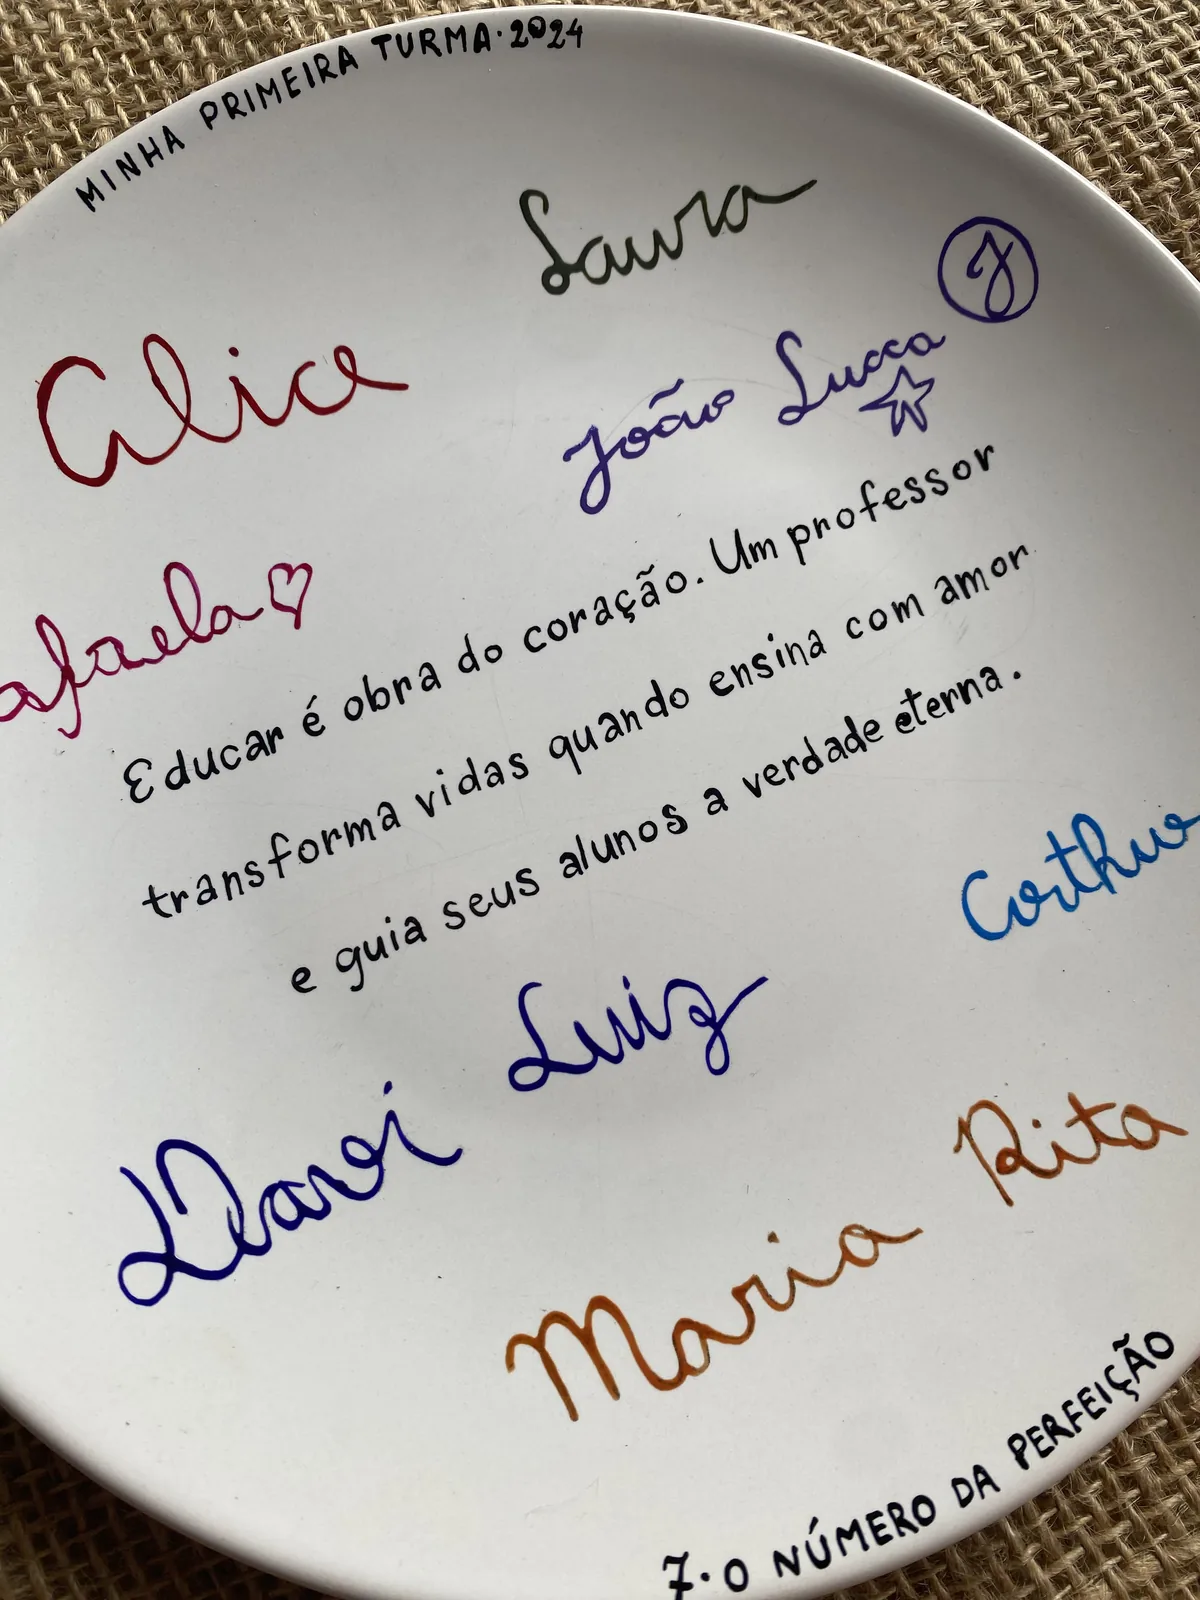 MINHA PRIMEIRA TURMA·2024
Laura
J
Alice
João Lucca
afaela
Educar é obra do coração. Um professor
transforma vidas quando ensina com amor
e guia seus alunos a verdade eterna.
Luiz
Davi
Rita
Maria
7·O NÚMERO DA PERFEIÇÃO